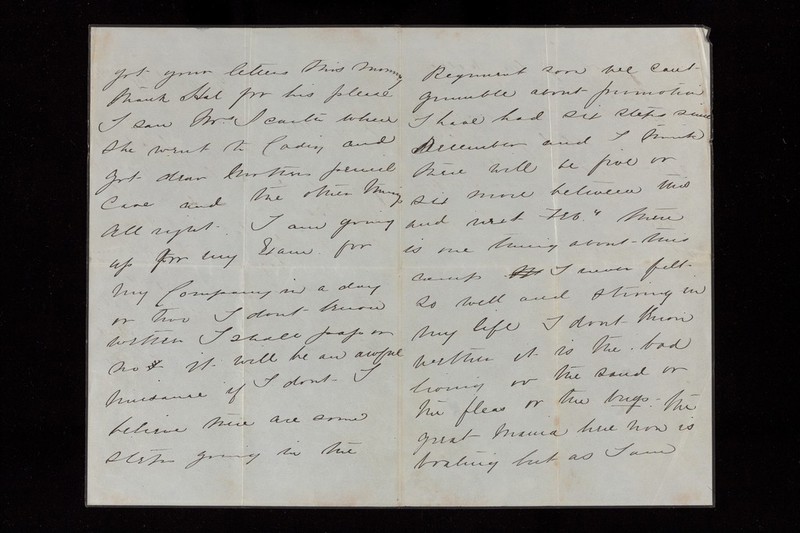 got your letters this morning
thank Hal for his please
I saw Mrs I carter when
she went to Cadiz and
got dear Mothers pencil
case and the other things
all right. I am going
up for my Exam for
My Company in a day
or two I dont know
wether I shall pass or
not it will be an awful
nuisance if I dont I
believe there are some
steps going in the
Regiment soon we cant
grumble about promotion
I have had six steps since
December and I think
there will be five or
six more between this
and next Feb." there
is one thing about this
camp I never felt
so well and strong in
my life I dont know
wether it is the bad
living or the sand or
the fleas or the bugs. the
great Mania here now is
boating but as I am